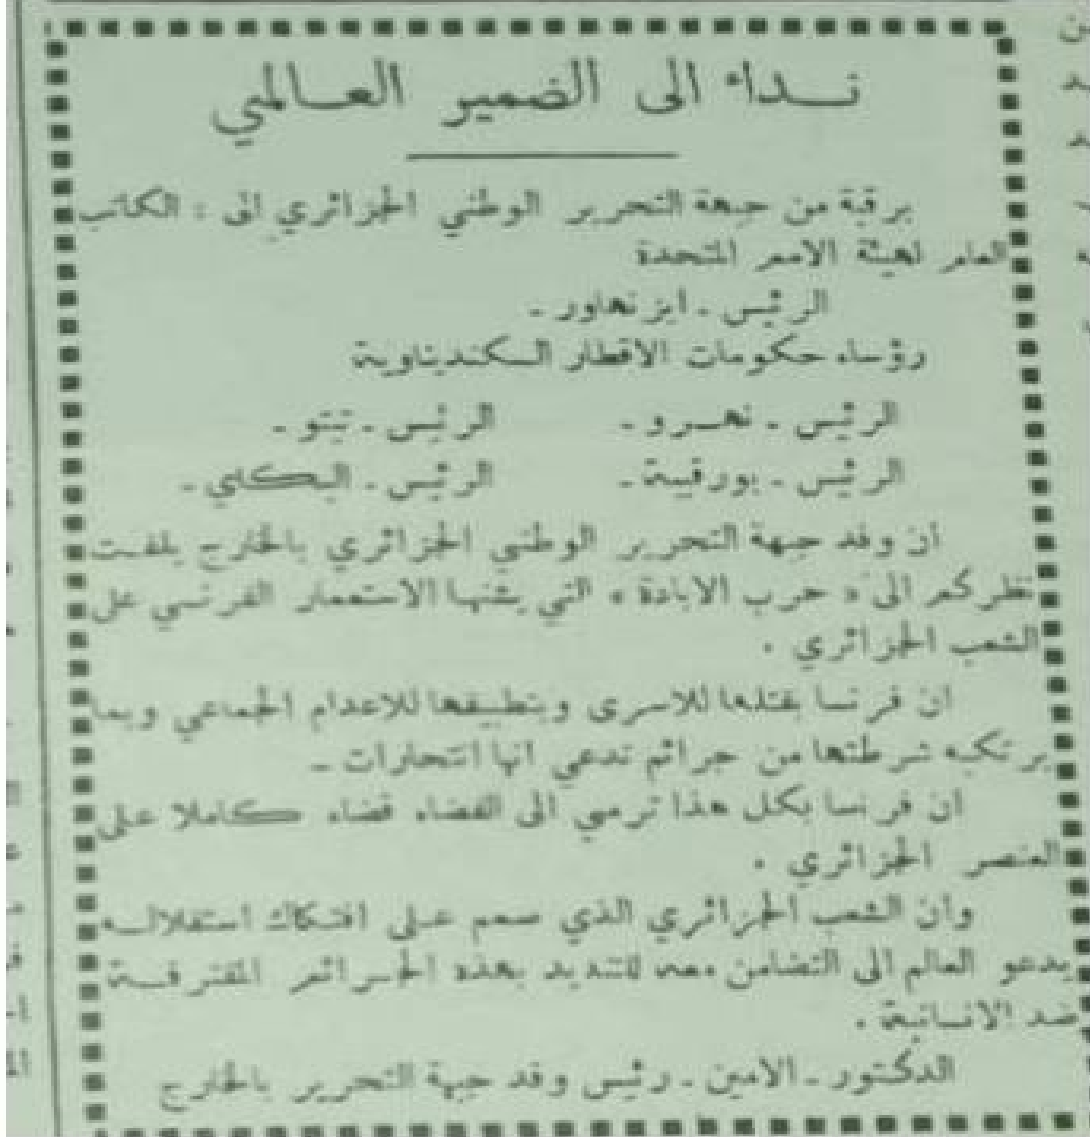 نداء الى الضمير العالمي
برقية من جبهة التحرير الوطني الجزائري الى : الكاتب
العام لهيئة الامم المتحدة
الرئيس ـ ايزنهاور ـ
رؤساء حكومات الاقطار السكنديناوية
الرئيس ـ نهرو ـ الرئيس ـ تيتو ـ
الرئيس ـ بورقيبة ـ الرئيس ـ البكاي ـ
ان وفد جبهة التحرير الوطني الجزائري بالخارج يلفت
نظركم الى « حرب الابادة » التي يشنها الاستعمار الفرنسي على
الشعب الجزائري .
ان فرنسا بقتلها للاسرى وبتطبيقها للاعدام الجماعي وبما
يرتكبه شرطتها من جرائم تدعي انها انتحارات ـ
ان فرنسا بكل هذا ترمي الى القضاء قضاء كاملا على
العنصر الجزائري .
وان الشعب الجزائري الذي صمم على افتكاك استقلاله
يدعو العالم الى التضامن معه للتنديد بهذه الجرائم المقترفة
ضد الانسانية .
الدكتور ـ الامين ـ رئيس وفد جبهة التحرير بالخارج